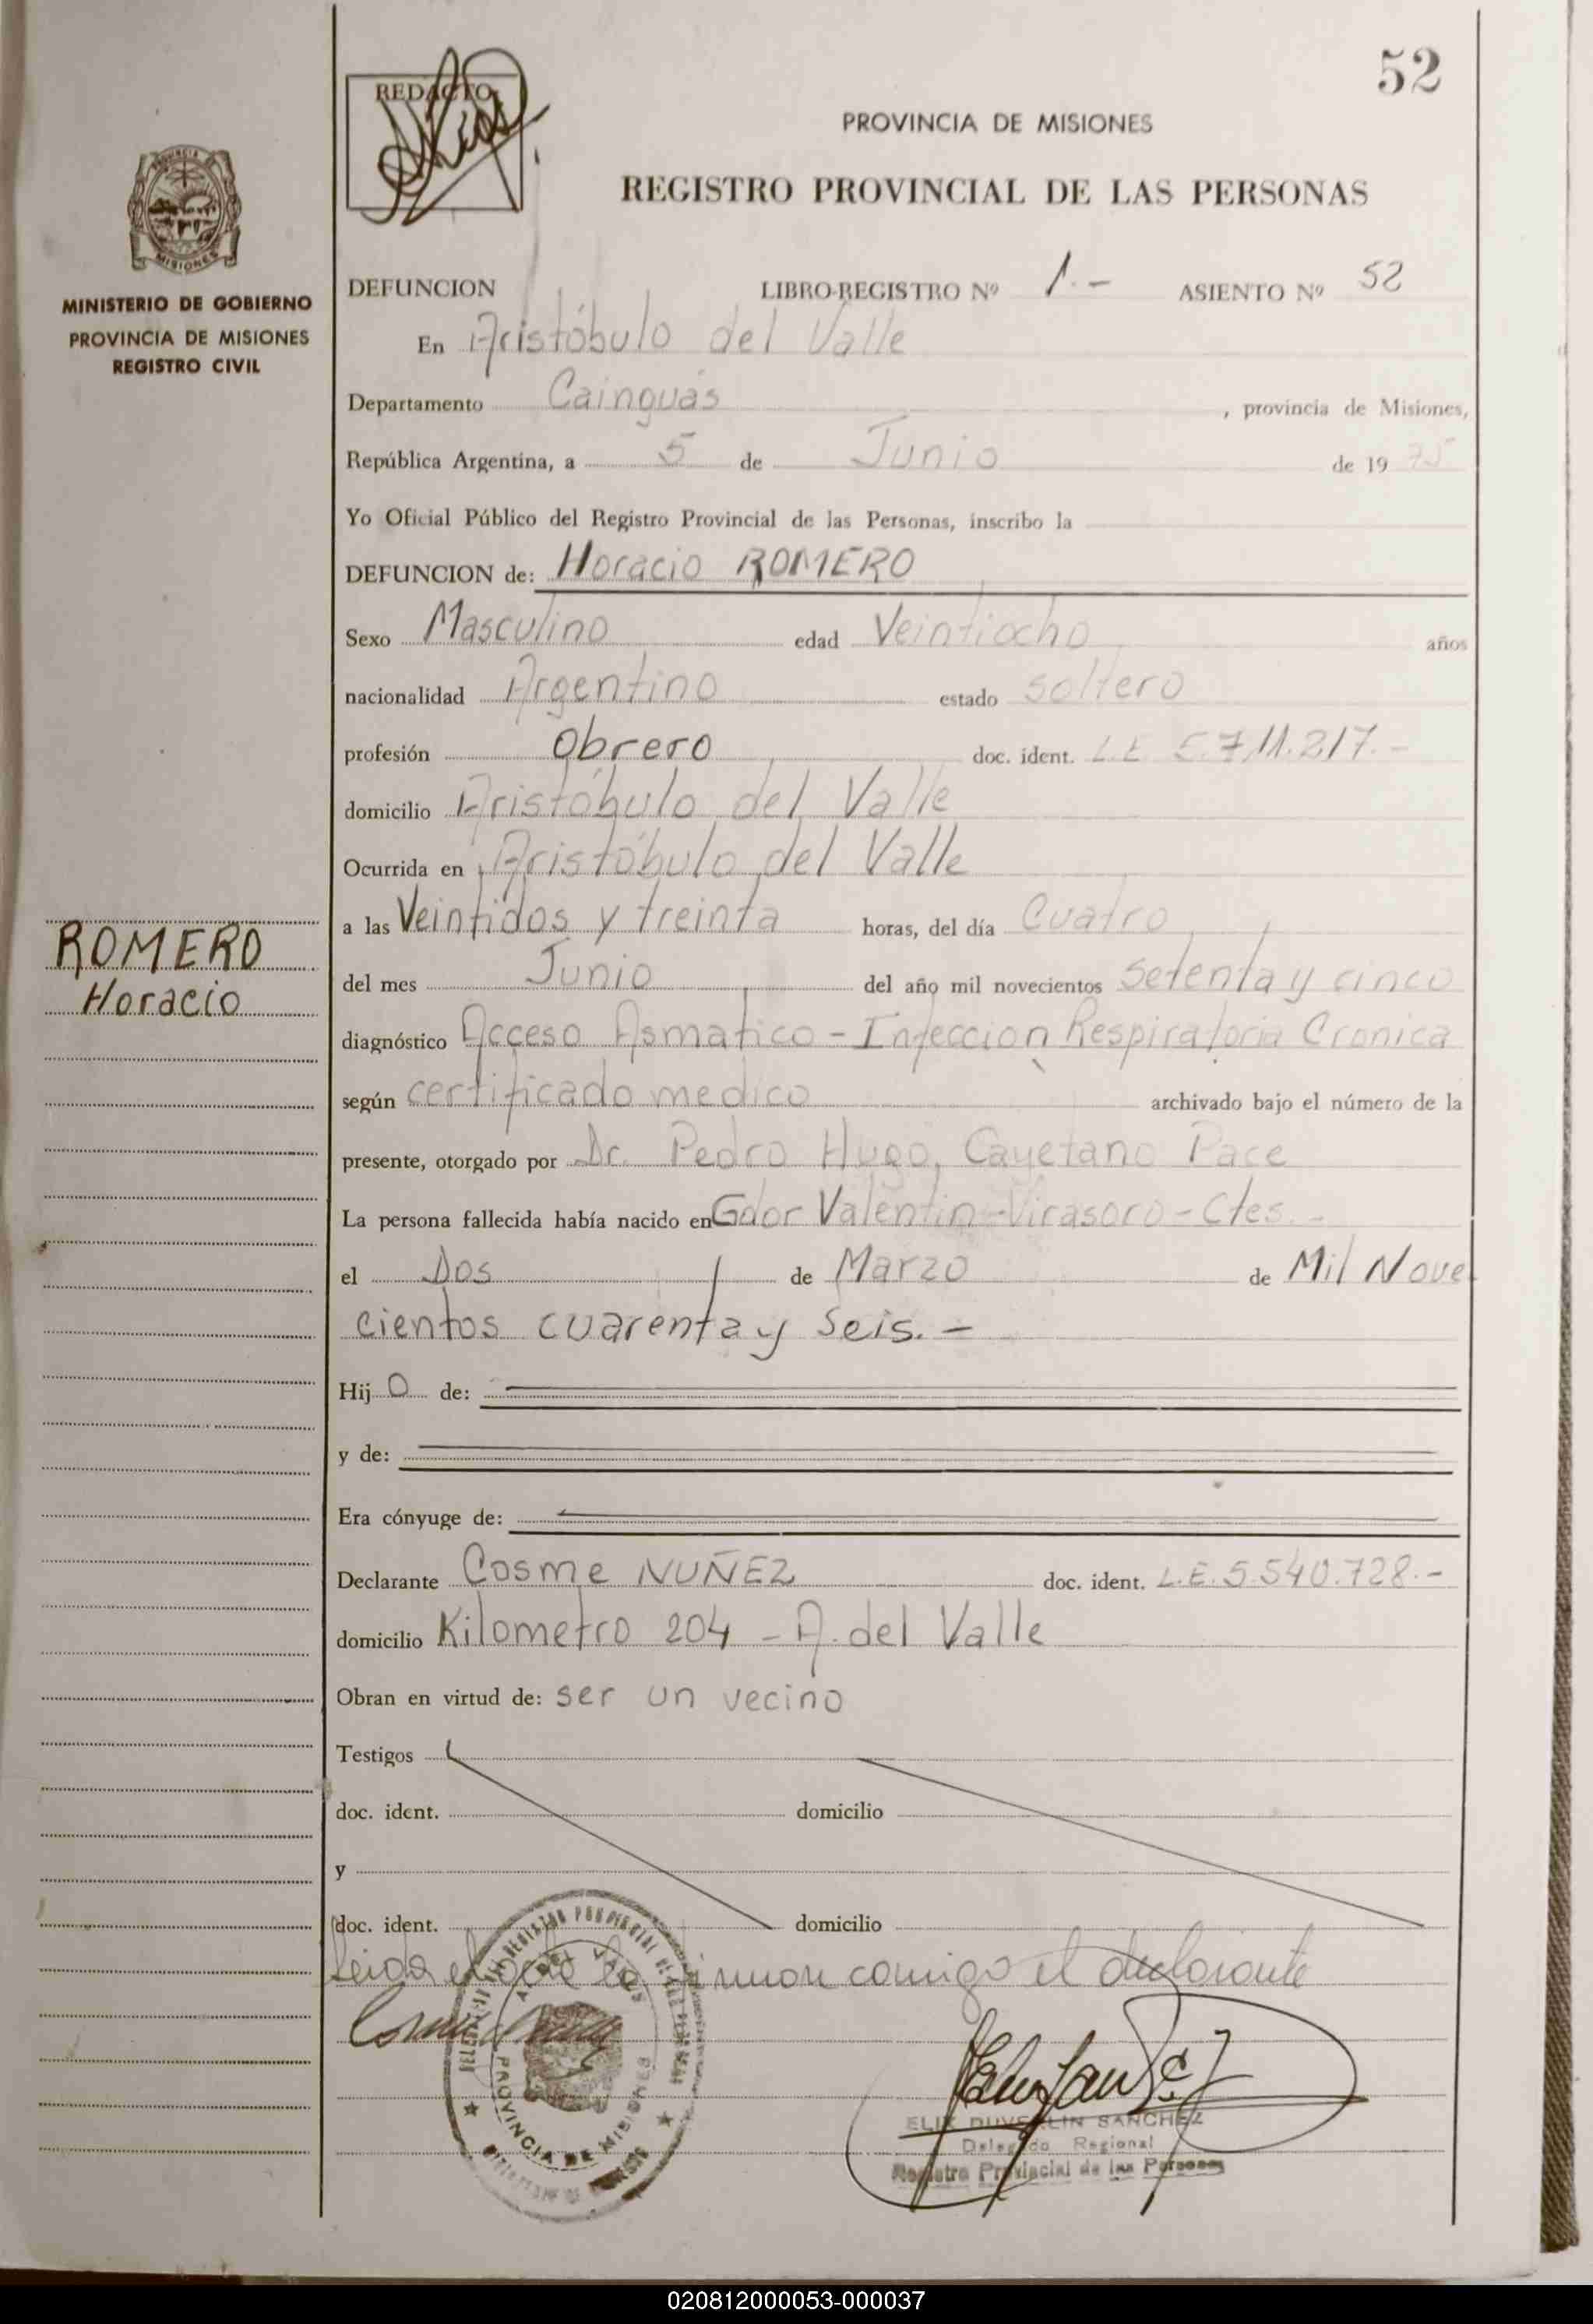 52
REDACTO
PROVINCIA DE MISIONES
REGISTRO PROVINCIAL DE LAS PERSONAS
MISIONES
MINISTERIO DE GOBIERNO
PROVINCIA DE MISIONES
REGISTRO CIVIL
DEFUNCION LIBRO-REGISTRO Nº 1.- ASIENTO Nº 52
En Aristóbulo del Valle
Departamento Cainguás , provincia de Misiones,
República Argentina, a 5 de Junio de 19 75
Yo Oficial Público del Registro Provincial de las Personas, inscribo la
DEFUNCION de: Horacio ROMERO
Sexo Masculino edad Veintiocho años
nacionalidad Argentino estado soltero
profesión obrero doc. ident. L.E 5.711.217.-
domicilio Aristóbulo del Valle
Ocurrida en Aristóbulo del Valle
a las Veintidos y treinta horas, del día Cuatro
ROMERO
Horacio
del mes Junio del año mil novecientos setenta y cinco
diagnóstico Acceso Asmatico - Infeccion Respiratoria Cronica
según certificado medico archivado bajo el número de la
presente, otorgado por Dr. Pedro Hugo, Cayetano Pace
La persona fallecida había nacido en Gdor Valentin-Virasoro-Ctes.-
el Dos de Marzo de Mil Nove
cientos cuarenta y seis.-
Hij o de:
y de:
Era cónyuge de:
Declarante Cosme NUÑEZ doc. ident. L.E. 5.540.728.-
domicilio Kilometro 204 - A. del Valle
Obran en virtud de: ser un vecino
Testigos
doc. ident. domicilio
y
doc. ident. domicilio
Leida el acta la firman comigo el declarante
PROVINCIA DE MISIONES
ELIX DUVERLIN SANCHEZ
Delegado Regional
Registro Provincial de las Personas
020812000053-000037